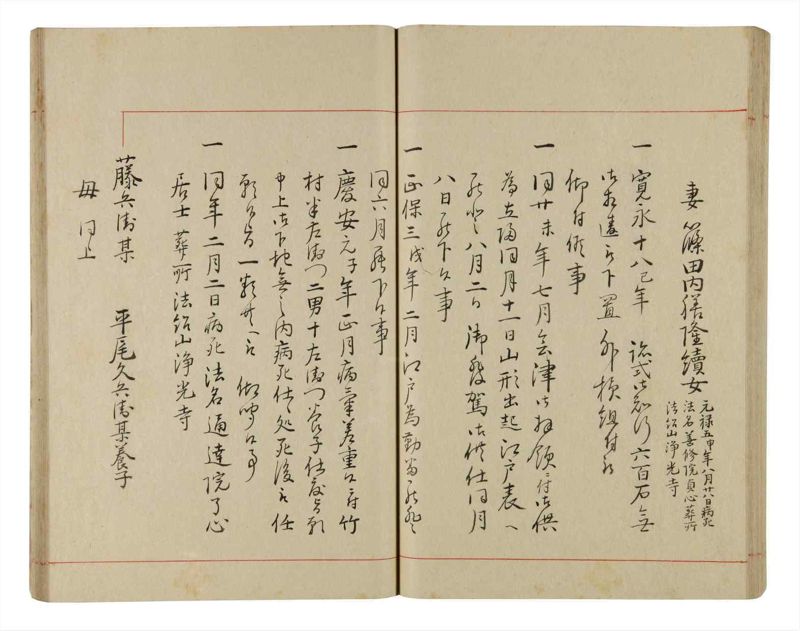 妻 篠田内膳隆續女
元禄五申年八月廿八日病死
法名善修院貞心葬所
法紹山浄光寺
一 寛永十八巳年 跡式知行六百石無
相違被下置 外様組
御付候事
一 同廿未年七月会津御拝領ニ付御供
為立帰同月十一日山形出起江戸表へ
罷登八月二日御發駕御供仕同月
八日罷下候事
一 正保三戌年二月江戸為勤番罷登
同六月罷下候事
一 慶安元子年正月病氣差重候ニ付竹
村半左衛門二男十左衛門養子仕度旨願
申上御下地無之内病死仕処死後被任
願候旨一類共へ被 仰聞候事
一 同年二月二日病死法名通達院了心
居士葬所法紹山浄光寺
藤兵衛某 平尾久兵衛某養子
母 同上